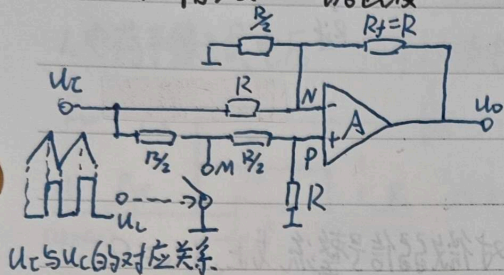 R/2
Rf=R
uI
R
N
A
uo
R/2
M
R/2
P
R
uc
uI与uc的对应关系